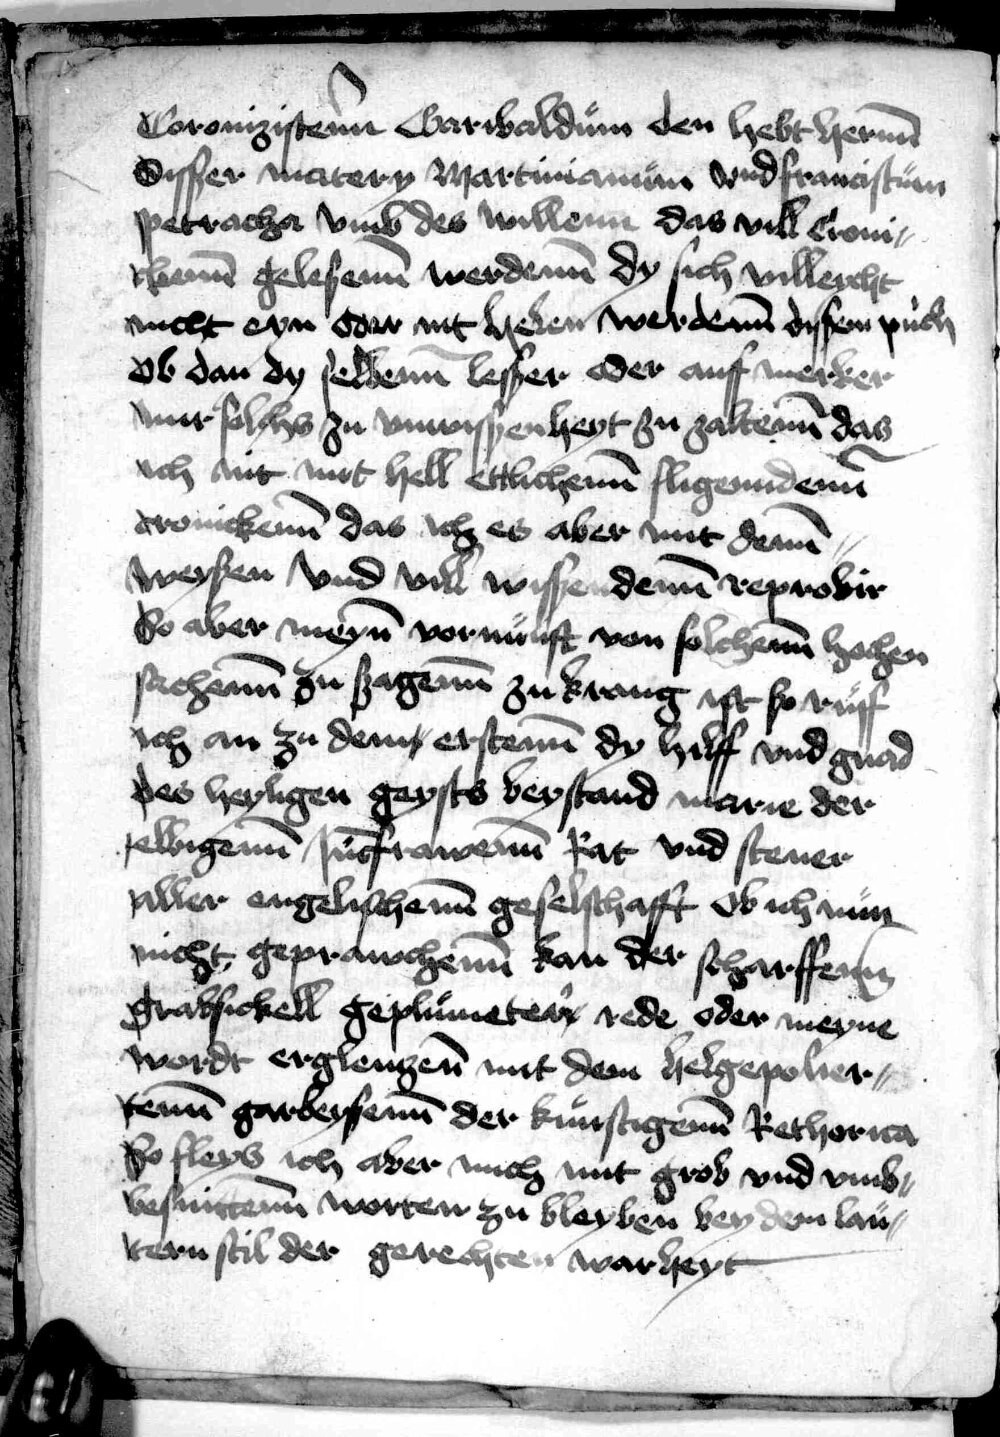 Coronizistenn Garibaldum den hebt hernn
disszer matery Martinianum vnd franciscum
petracha vmb des willenn das vill Croni-
kenn gelesenn werdenn dy sich villeycht
nicht eyn oder nit helen werdenn dissem puch
ob dan dy selbenn leszer oder auff merker
mir solchs zu vnwissenheyt zu zaltenn das
ich nit mit hell ettlichenn fligenndenn
cronickenn das ich es aber mit denn
weyszen vnd vill wiszendenn reprobir
So aber meyn vornunfft von solchenn hochen
sachenn zu szagenn zu krang ist so ruff
ich an zu dem erstenn dy hilff vnd gnad
des heyligen geysts beystand marie der
selbigenn Junckfrawenn Rat vnd steuer
aller engelischenn geselschafft Ob ich nun
nicht geprauchenn kan der scharffenn
grabsickell geplumeter rede oder meyne
wordt erglenzen mit dem helgepolier-
tenn garbeyszenn der kunstigenn Rethorica
So fleys ich aber mich mit grob vnd vmb-
besnittenn worten zu bleyben bey dem lau-
tern stil der gerechten warheyt